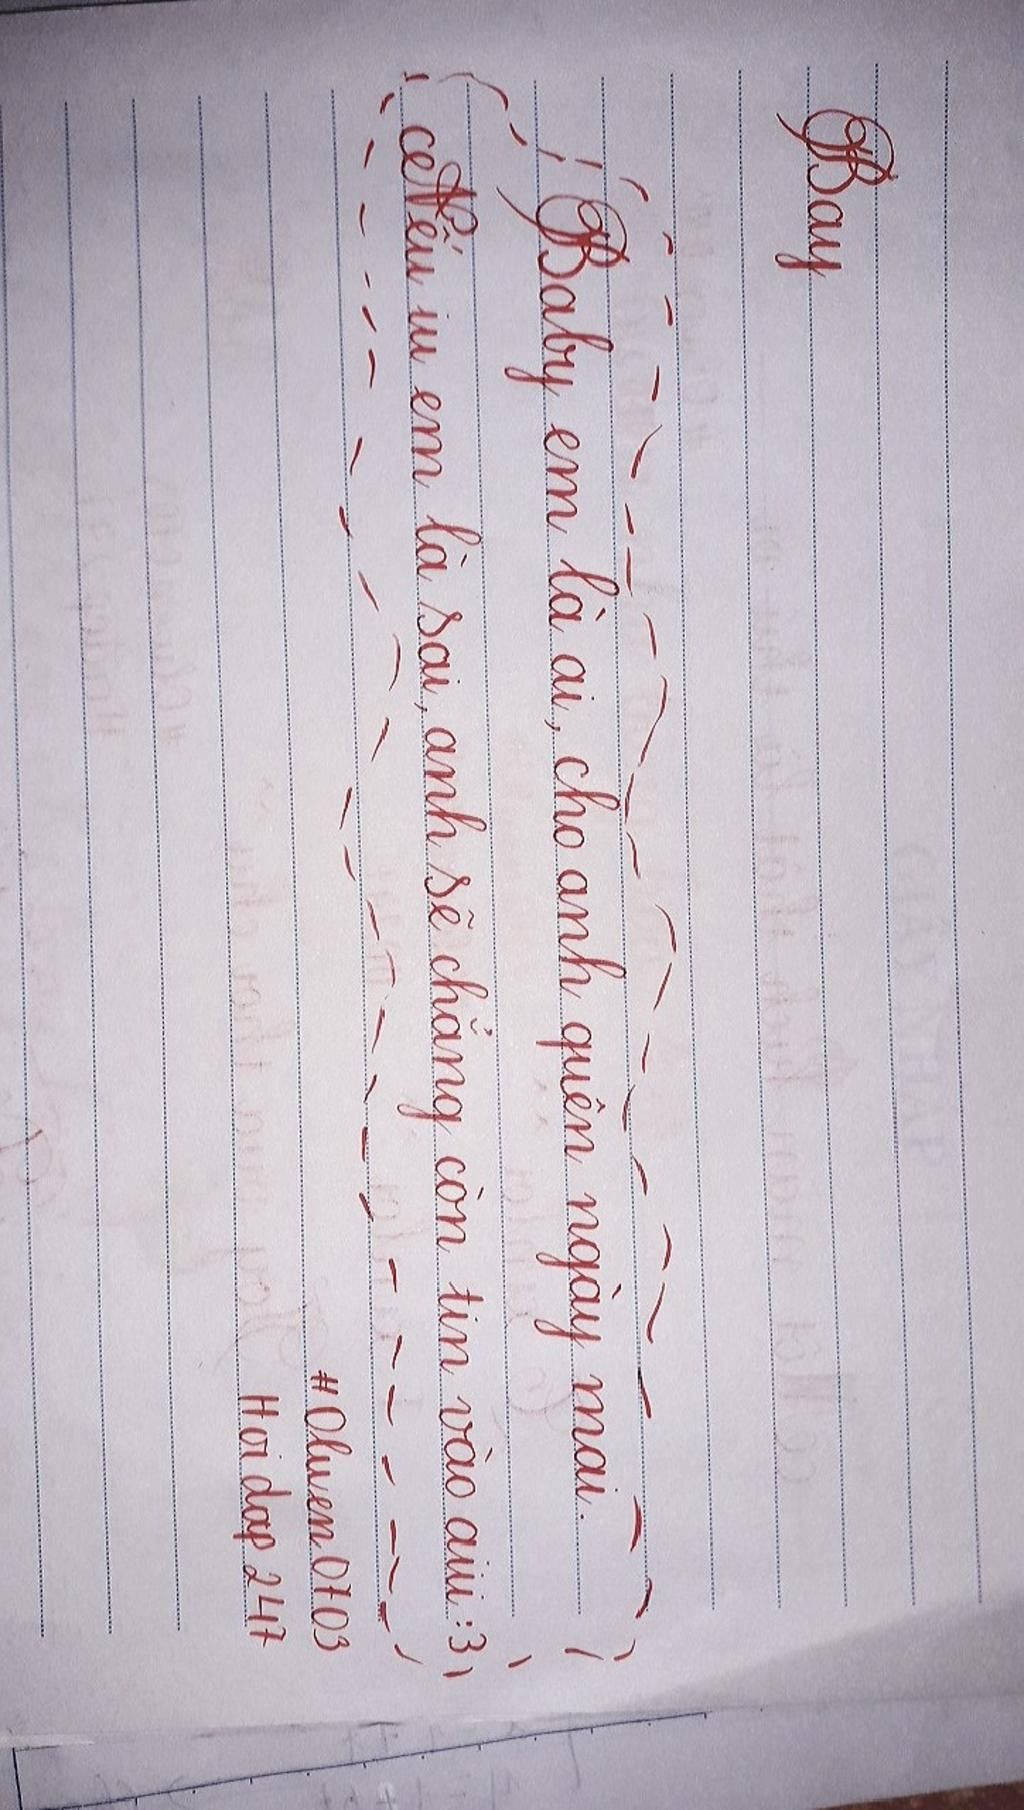 Bay
Baby em là ai, cho anh quên ngày mai.
Nếu iu em là sai, anh sẽ chẳng còn tin vào aiii :3
#Oluen0703
Hoidap247